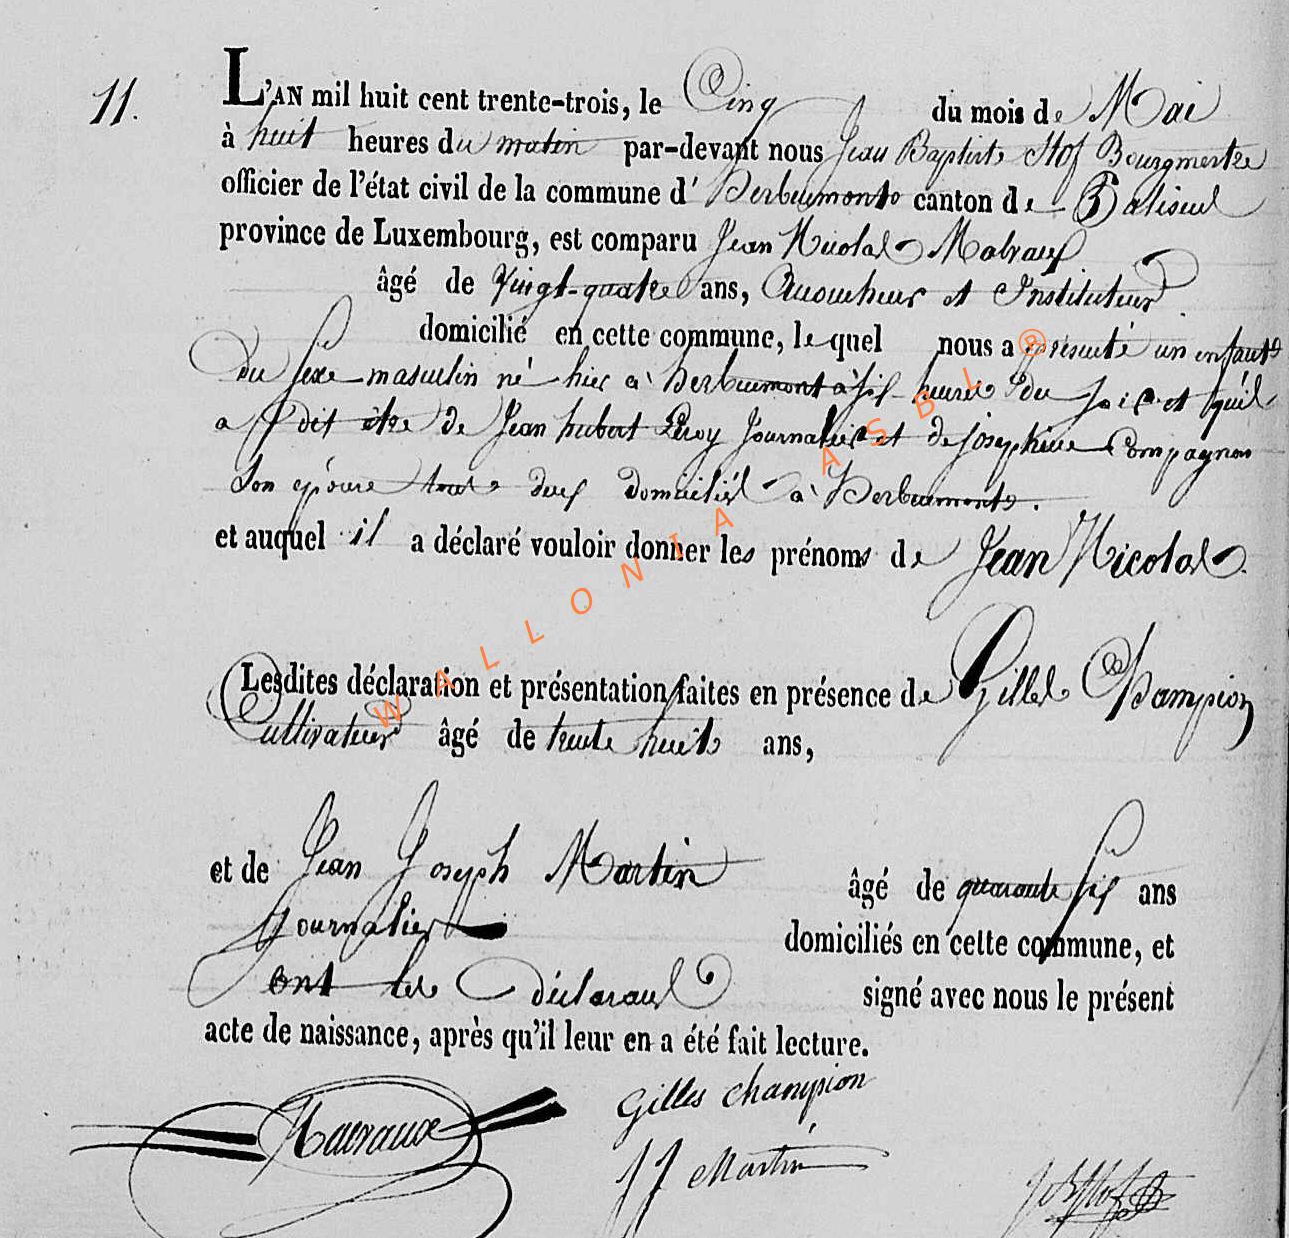 11.
L'AN mil huit cent trente-trois, le Cinq du mois de Mai
à huit heures du matin par-devant nous Jean Baptiste Hof Bourgmestre
officier de l'état civil de la commune d' Herbeumont canton de Paliseul
province de Luxembourg, est comparu Jean Nicolas
âgé de Vingt-quatre ans, Accoucheur et Instituteur
domicilié en cette commune, lequel nous a présenté un enfant
du sexe masculin né hier à herbeumont à six heures du soir et qu'il
a dit être de Jean hubert Leroy Journalier et de Josephine Compagnon
Son épouse tous deux domiciliés à Herbeumont.
et auquel il a déclaré vouloir donner les prénoms de Jean Nicolas.
Lesdites déclaration et présentation faites en présence de Gilles Champion
Cultivateur âgé de trente huit ans,
et de Jean Joseph Martin âgé de quarante six ans
Journalier domiciliés en cette commune, et
ont les déclarans signé avec nous le présent
acte de naissance, après qu'il leur en a été fait lecture.
Gilles Champion
JJ Martin
JB Hof
WALLONIA ASBL ®